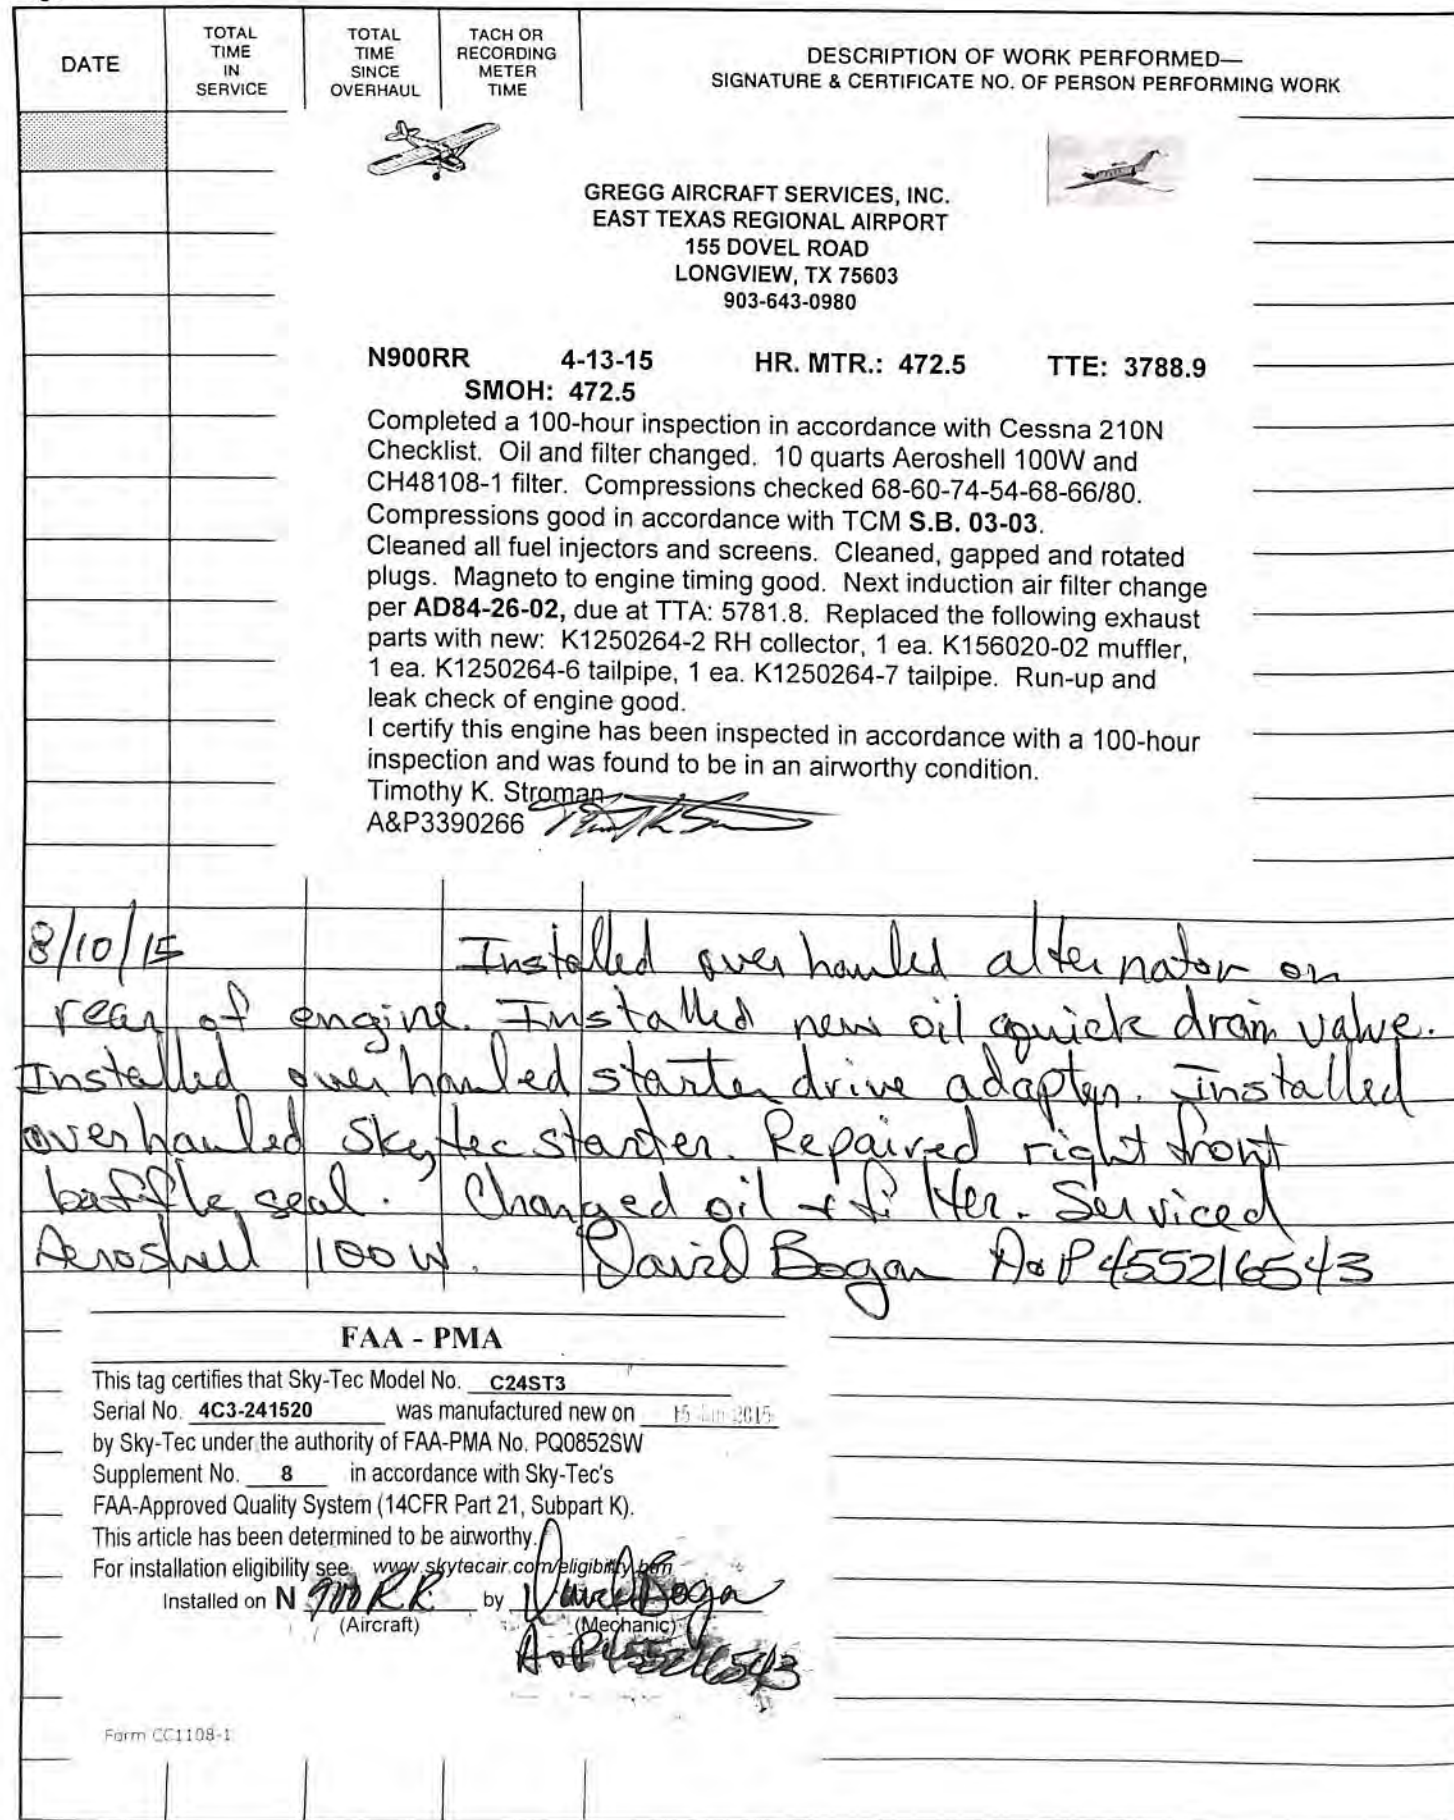 DATE
TOTAL TIME IN SERVICE
TOTAL TIME SINCE OVERHAUL
TACH OR RECORDING METER TIME
DESCRIPTION OF WORK PERFORMED—
SIGNATURE & CERTIFICATE NO. OF PERSON PERFORMING WORK
GREGG AIRCRAFT SERVICES, INC.
EAST TEXAS REGIONAL AIRPORT
155 DOVEL ROAD
LONGVIEW, TX 75603
903-643-0980
N900RR 4-13-15 HR. MTR.: 472.5 TTE: 3788.9
SMOH: 472.5
Completed a 100-hour inspection in accordance with Cessna 210N
Checklist. Oil and filter changed. 10 quarts Aeroshell 100W and
CH48108-1 filter. Compressions checked 68-60-74-54-68-66/80.
Compressions good in accordance with TCM S.B. 03-03.
Cleaned all fuel injectors and screens. Cleaned, gapped and rotated
plugs. Magneto to engine timing good. Next induction air filter change
per AD84-26-02, due at TTA: 5781.8. Replaced the following exhaust
parts with new: K1250264-2 RH collector, 1 ea. K156020-02 muffler,
1 ea. K1250264-6 tailpipe, 1 ea. K1250264-7 tailpipe. Run-up and
leak check of engine good.
I certify this engine has been inspected in accordance with a 100-hour
inspection and was found to be in an airworthy condition.
Timothy K. Stroman
A&P3390266
8/10/15 Installed overhauled alternator on
rear of engine. Installed new oil quick drain valve.
Installed overhauled starter drive adapter. Installed
overhauled Skytec starter. Repaired right front
baffle seal. Changed oil + filter. Serviced
Aeroshell 100W. David Bogan A&P455216543
FAA - PMA
This tag certifies that Sky-Tec Model No. C24ST3
Serial No. 4C3-241520 was manufactured new on 15 Jun 2015
by Sky-Tec under the authority of FAA-PMA No. PQ0852SW
Supplement No. 8 in accordance with Sky-Tec's
FAA-Approved Quality System (14CFR Part 21, Subpart K).
This article has been determined to be airworthy.
For installation eligibility see www.skytecair.com/eligibility.htm
Installed on N 900RR by David Bogan
(Aircraft) (Mechanic)
A&P455216543
Form CC1108-1